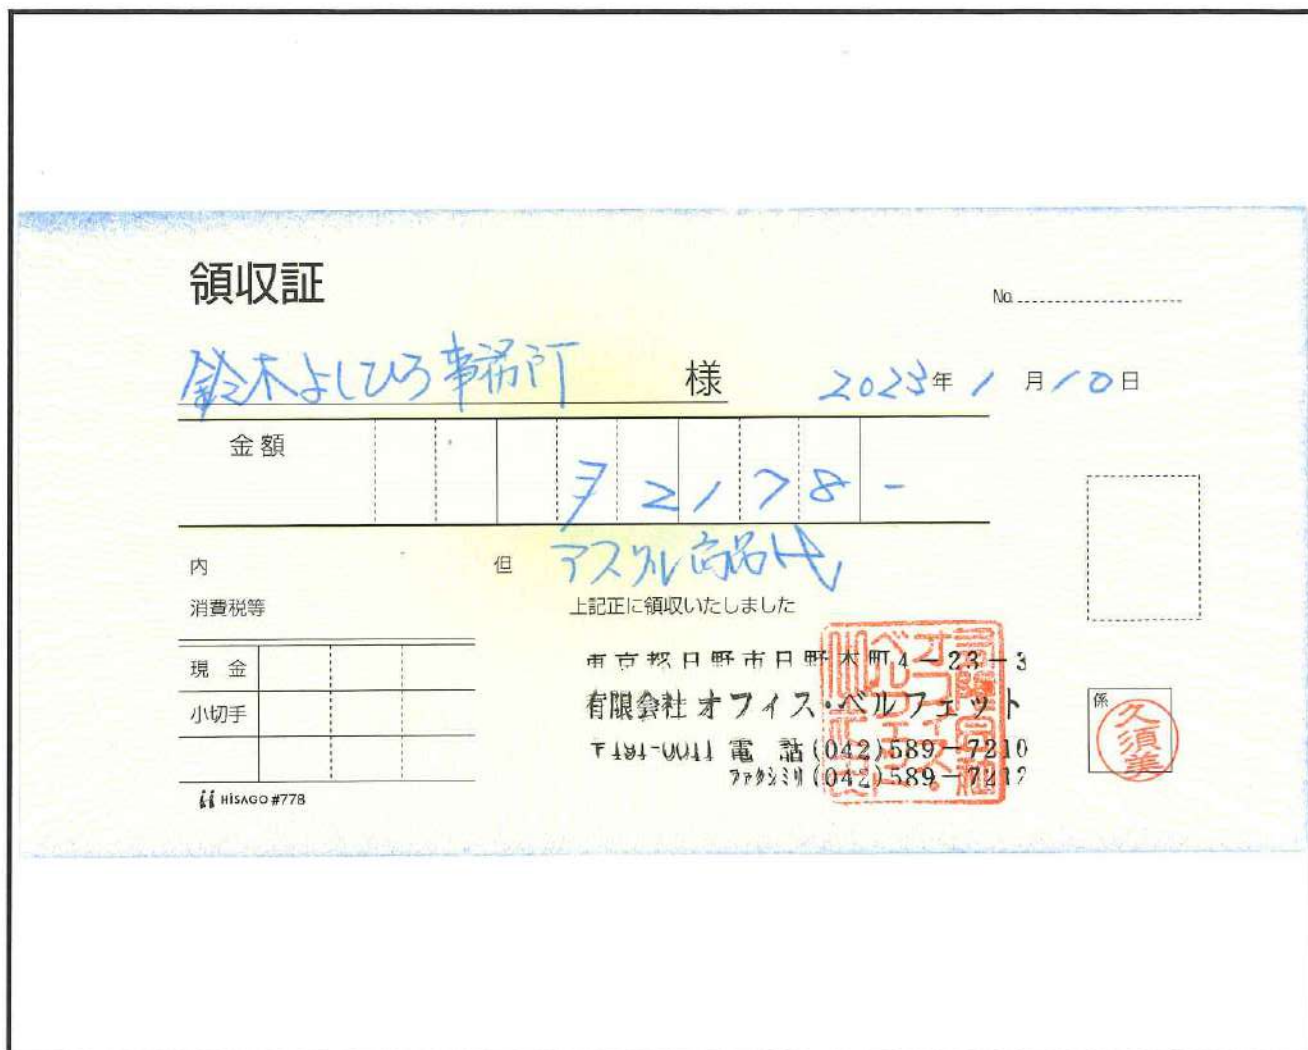 領収証
No.
鈴木よしひろ事務所 様 2023年1月10日
金額
¥2178-
内 但 アスクル商品代
消費税等 上記正に領収いたしました
現金
小切手
東京都日野市日野本町4-23-3
有限会社オフィス・ベルフェット
〒191-0011 電話(042)589-7210
ファクシミリ(042)589-7212
係
久須美
HISAGO #778